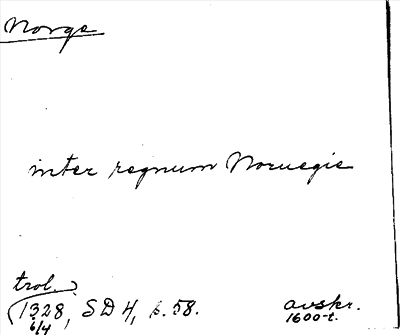 Norge
inter regnum Noruegie
trol.
1328, SD 4, s. 58. avskr.
6/4 1600-t.